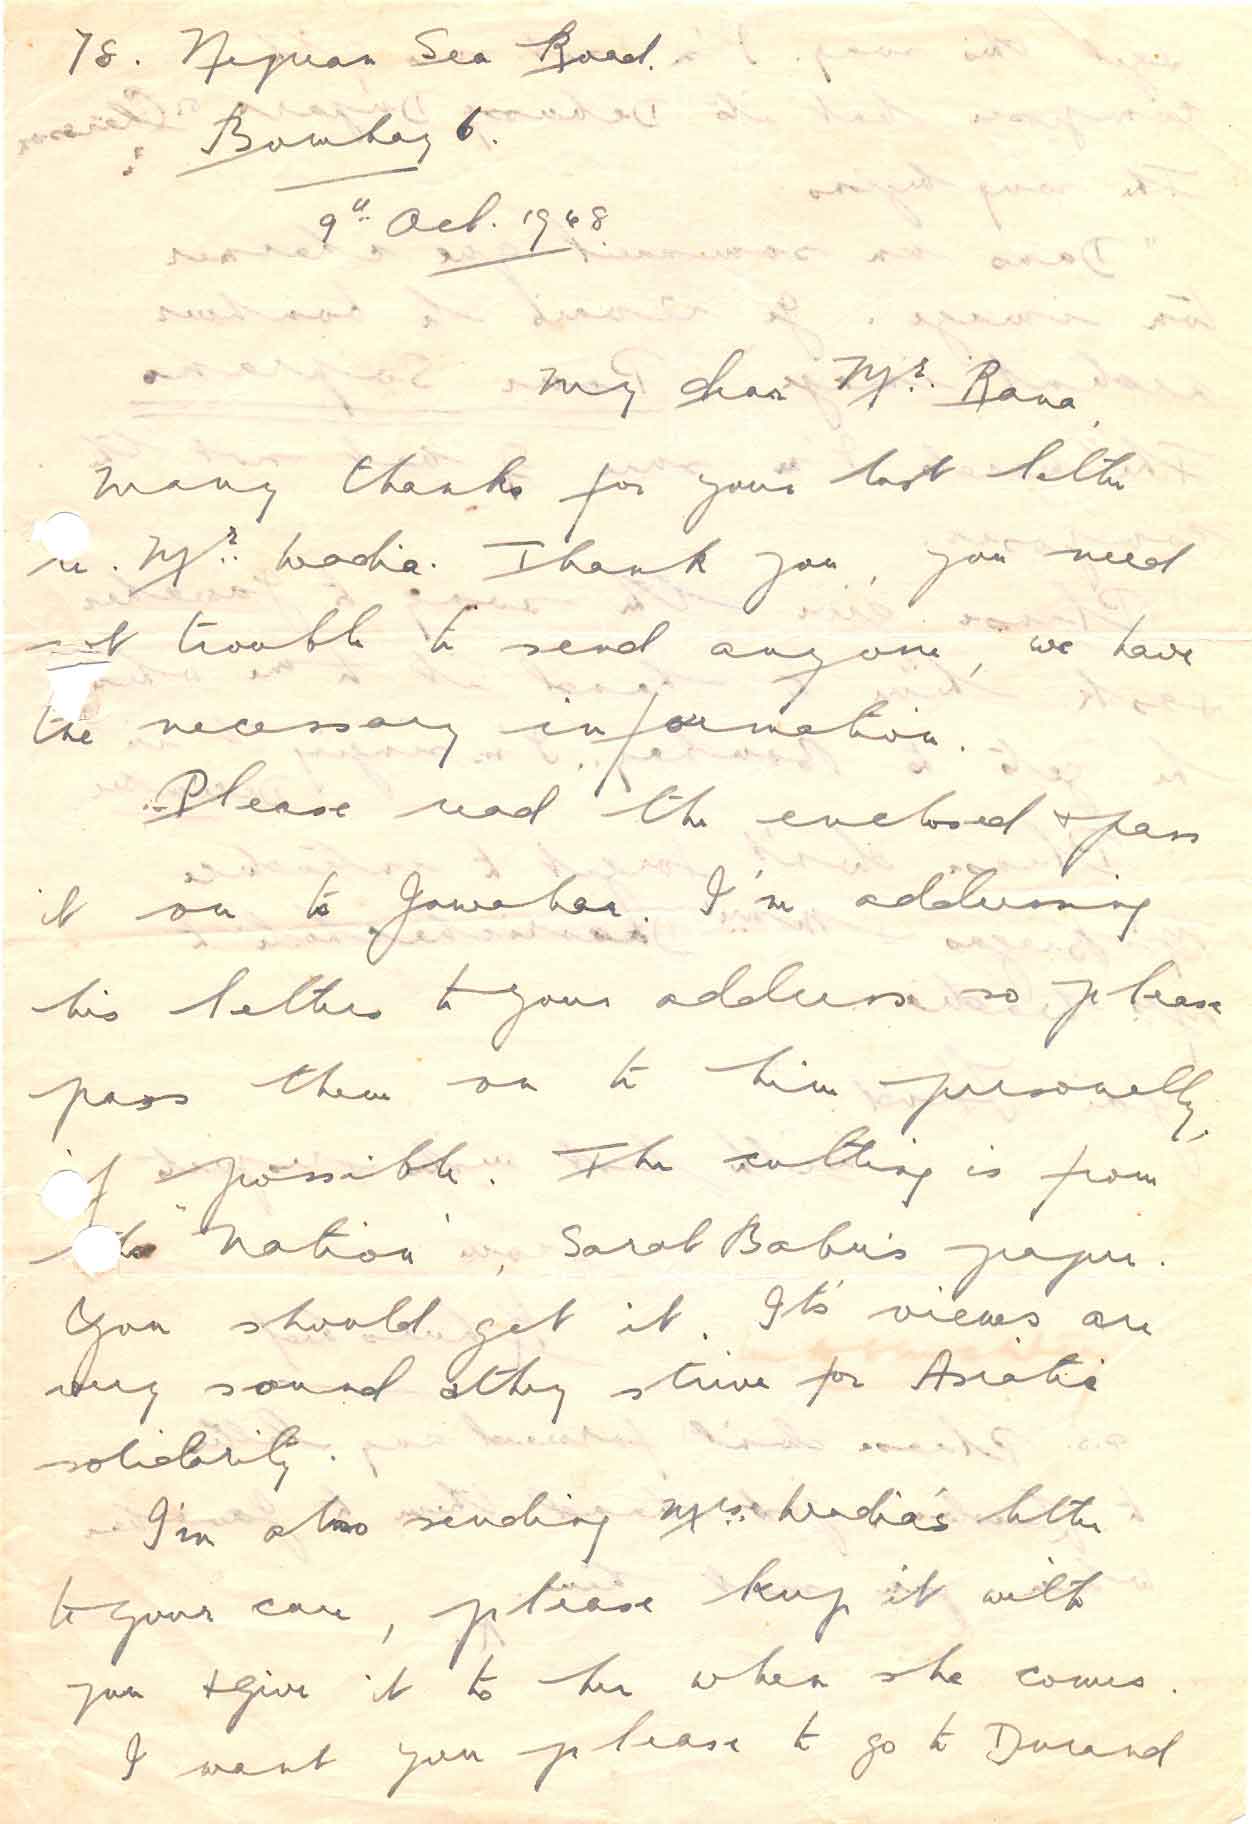 78. Nepean Sea Road.
Bombay 6.
9th Oct. 1948
My dear Mr. Rana,
Many thanks for your last letter
re. Mr. Wadia. Thank you, you need
not trouble to send anyone, we have
the necessary information.
Please read the enclosed & pass
it on to Jawahar. I'm addressing
his letters to your address so please
pass them on to him personally,
if possible. The cutting is from
the "Nation", Sarat Babu's paper.
You should get it. It's views are
very sound & they strive for Asiatic
solidarity.
I'm also sending Mrs. Wadia's letter
to your care, please keep it with
you & give it to her when she comes.
I want you please to go to Durand